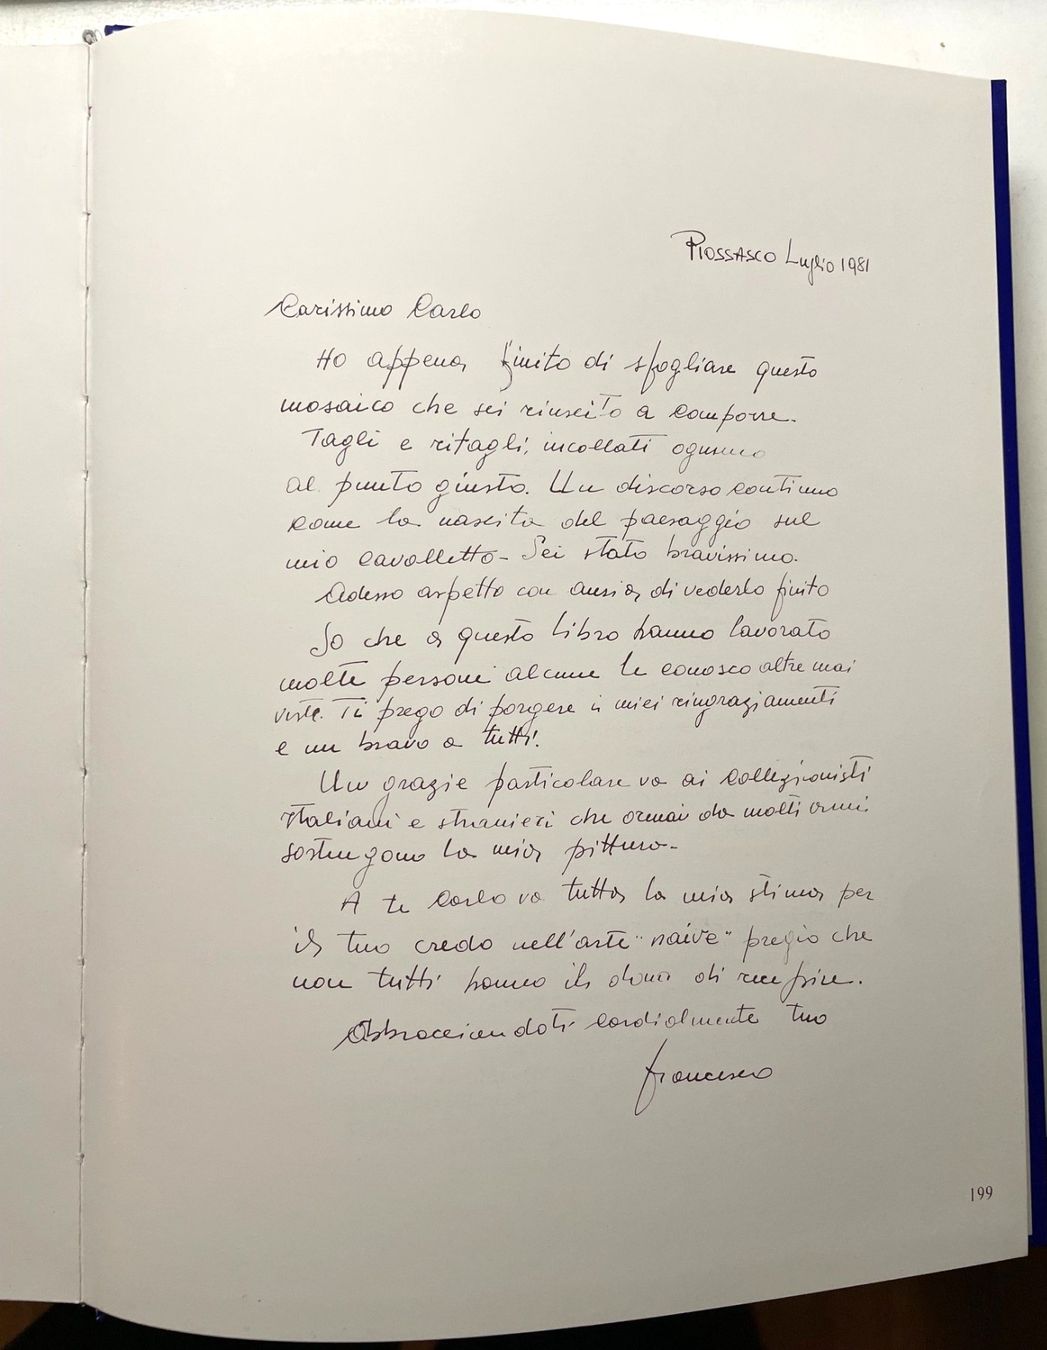 Piossasco Luglio 1981
Carissimo Carlo
Ho appena finito di sfogliare questo
mosaico che sei riuscito a comporre.
Tagli e ritagli, incollati ognuno
al punto giusto. Un discorso continuo
come la nascita del paesaggio sul
mio cavalletto - Sei stato bravissimo.
Adesso aspetto con ansia di vederlo finito
So che a questo libro hanno lavorato
molte persone alcune le conosco altre mai
viste. Ti prego di porgere i miei ringraziamenti
e un bravo a tutti!
Un grazie particolare va ai collezionisti
italiani e stranieri che ormai da molti anni
sostengono la mia pittura -
A te Carlo va tutta la mia stima per
il tuo credo nell'arte "naive" pregio che
non tutti hanno il dono di recepire.
Abbracciandoti cordialmente tuo
Francesco
199